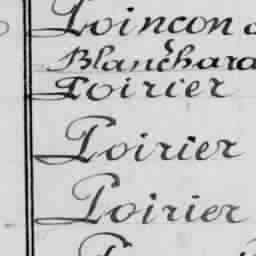 Poincon
Blanchard
Poirier
Poirier
Poirier